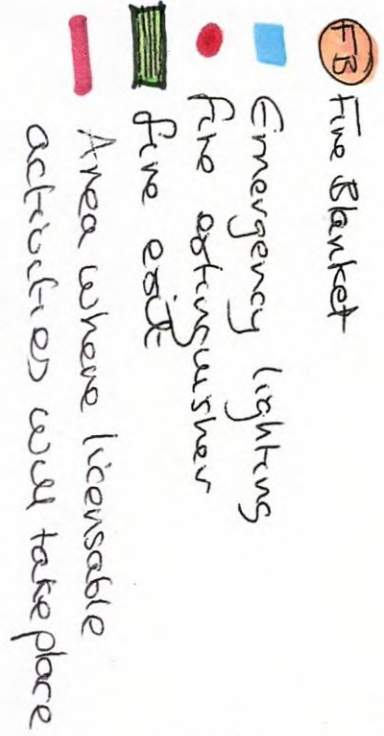 FB Fire Blanket
Emergency lighting
fire extinguisher
fire exit
Area where licensable
activities will take place